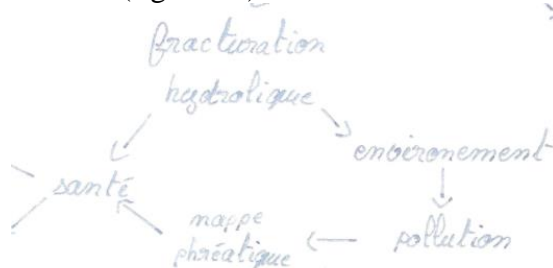 fracturation
hydrolique
environement
santé
nappe
phréatique
pollution